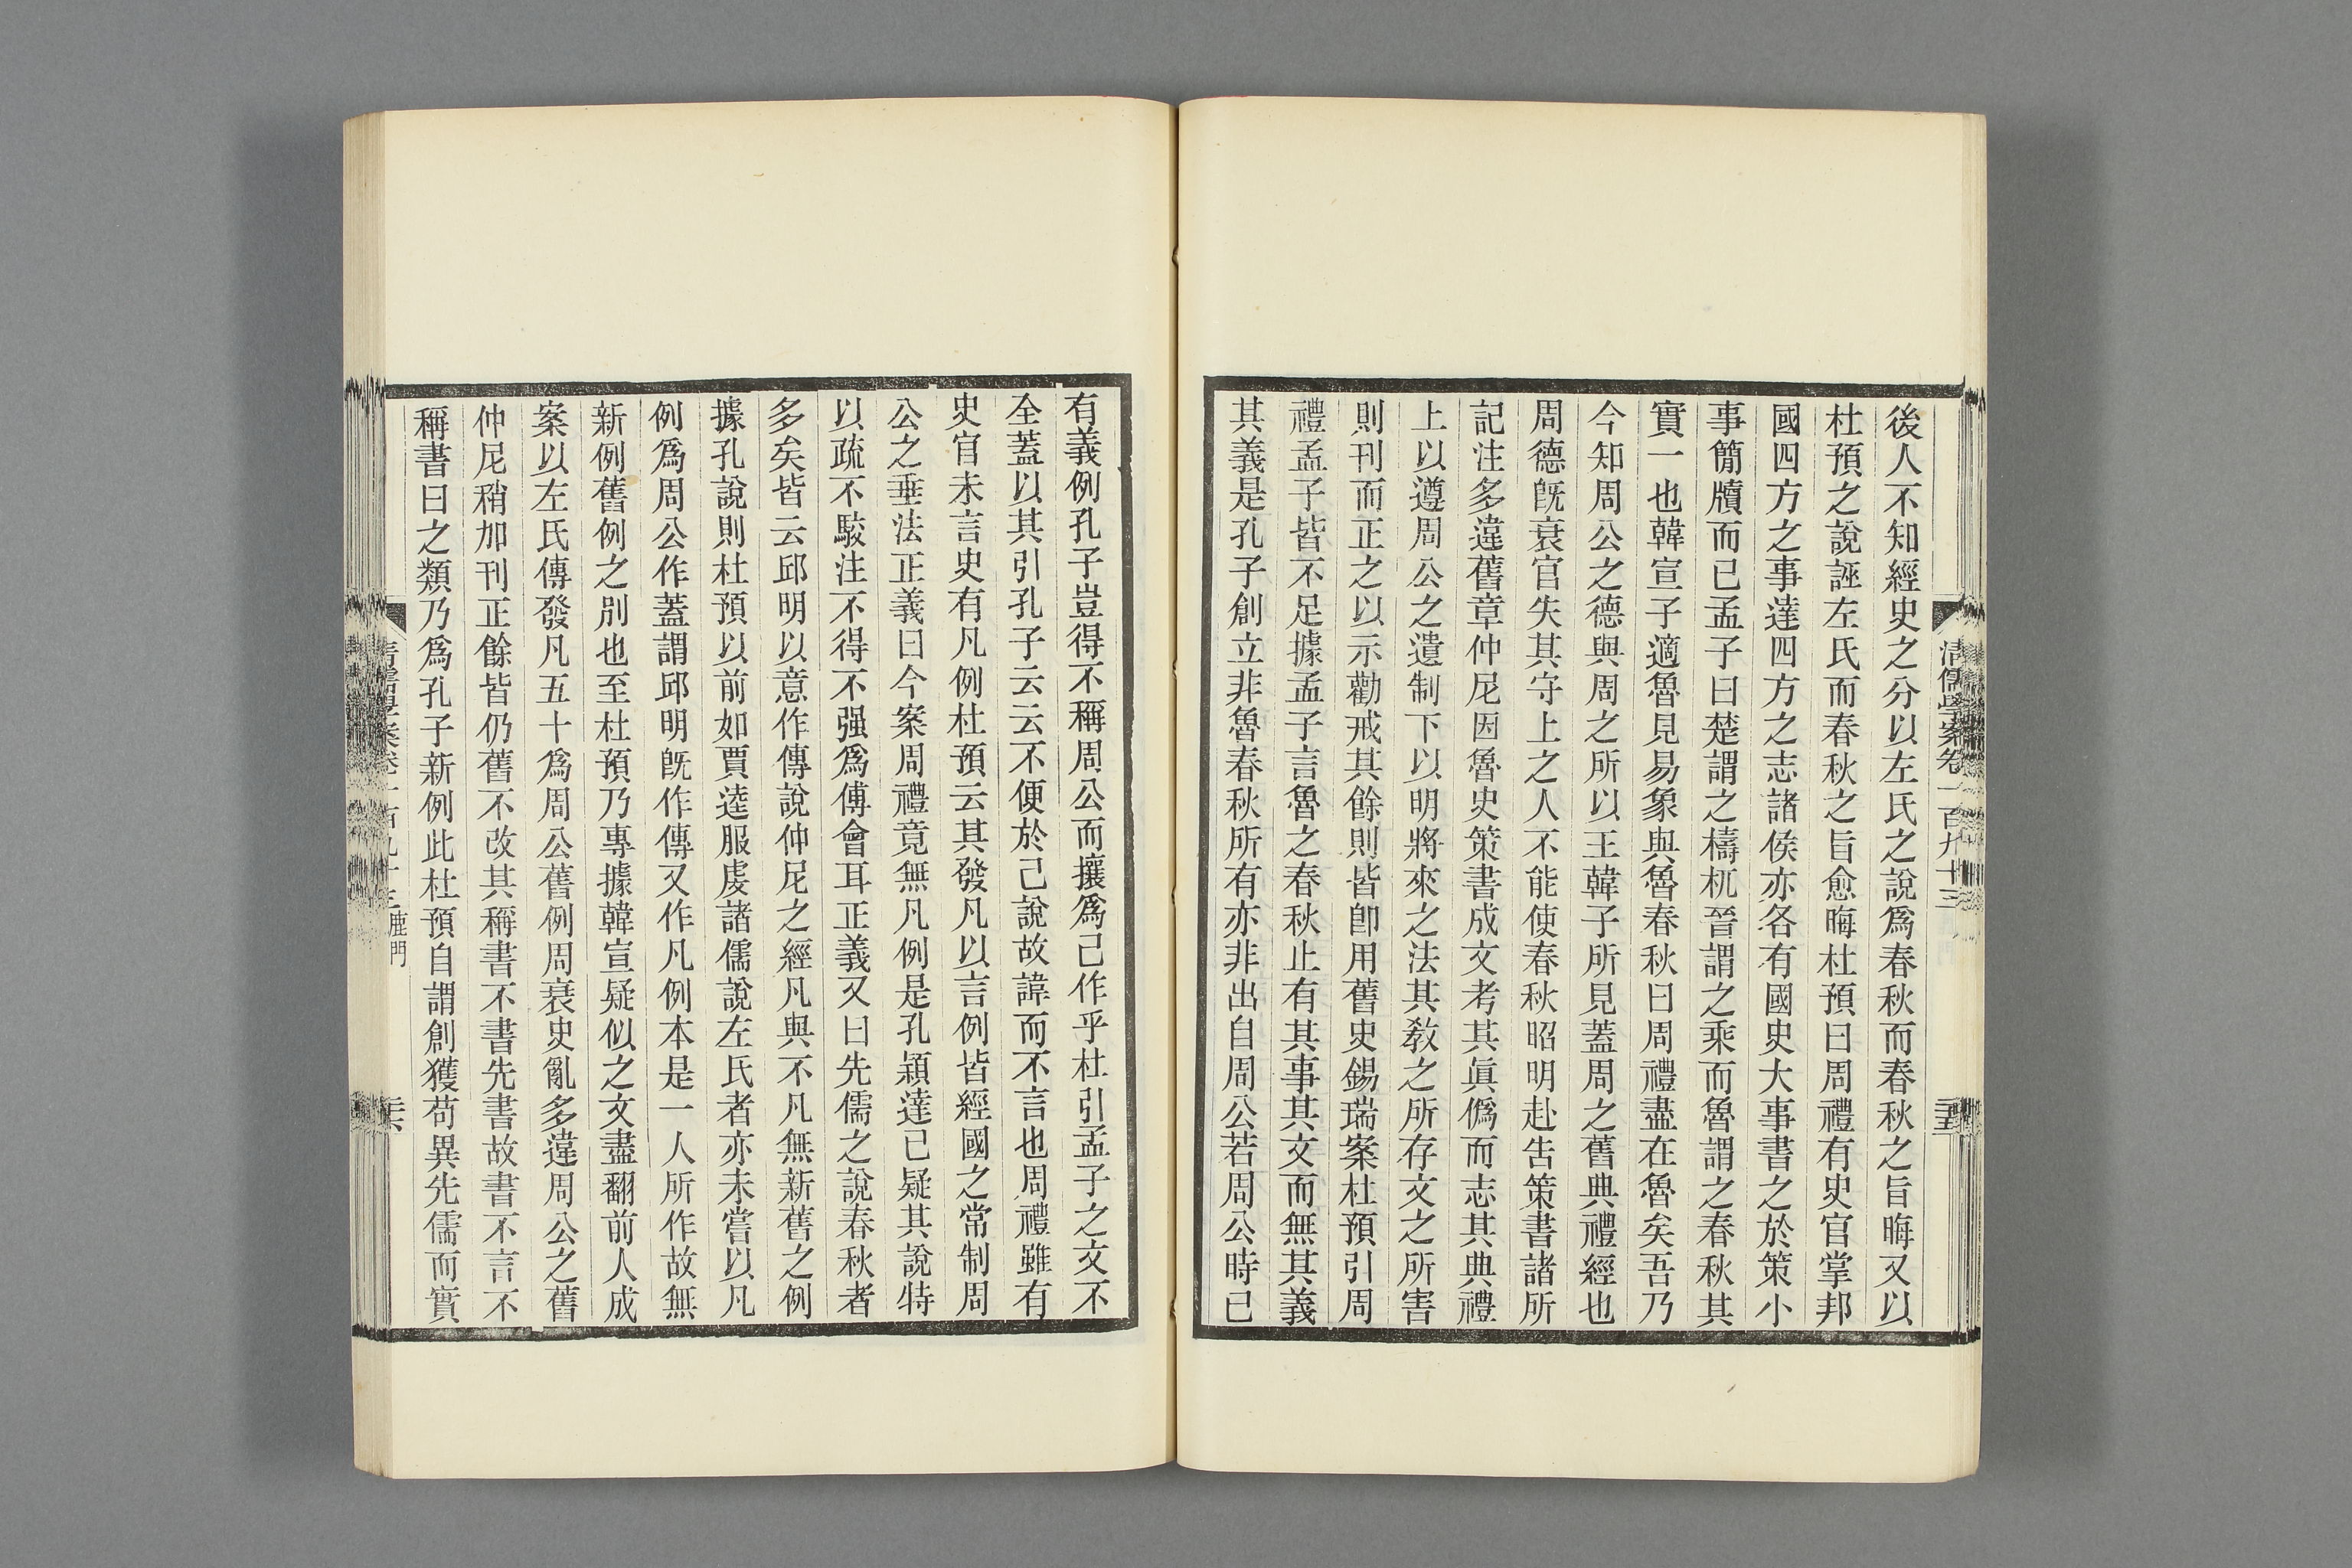 清儒學案卷一百九十三
三十五
後人不知經史之分以左氏之說爲春秋而春秋之旨晦又以
杜預之說誣左氏而春秋之旨愈晦杜預曰周禮有史官掌邦
國四方之事達四方之志諸侯亦各有國史大事書之於策小
事簡牘而已孟子曰楚謂之檮杌晉謂之乘而魯謂之春秋其
實一也韓宣子適魯見易象與魯春秋曰周禮盡在魯矣吾乃
今知周公之德與周之所以王韓子所見蓋周之舊典禮經也
周德旣衰官失其守上之人不能使春秋昭明赴告策書諸所
記注多違舊章仲尼因魯史策書成文考其眞僞而志其典禮
上以遵周公之遺制下以明將來之法其敎之所存文之所害
則刊而正之以示勸戒其餘則皆卽用舊史錫瑞案杜預引周
禮孟子皆不足據孟子言魯之春秋止有其事其文而無其義
其義是孔子創立非魯春秋所有亦非出自周公若周公時已
有義例孔子豈得不稱周公而攘爲己作乎杜引孟子之文不
全蓋以其引孔子云云不便於己說故諱而不言也周禮雖有
史官未言史有凡例杜預云其發凡以言例皆經國之常制周
公之垂法正義曰今案周禮竟無凡例是孔穎達已疑其說特
以疏不駁注不得不强爲傅會耳正義又曰先儒之說春秋者
多矣皆云邱明以意作傳說仲尼之經凡與不凡無新舊之例
據孔說則杜預以前如賈逵服虔諸儒說左氏者亦未嘗以凡
例爲周公作蓋謂邱明旣作傳又作凡例本是一人所作故無
新例舊例之別也至杜預乃專據韓宣疑似之文盡翻前人成
案以左氏傳發凡五十爲周公舊例周衰史亂多違周公之舊
仲尼稍加刊正餘皆仍舊不改其稱書不書先書故書不言不
稱書曰之類乃爲孔子新例此杜預自謂創獲苟異先儒而實
鹿門